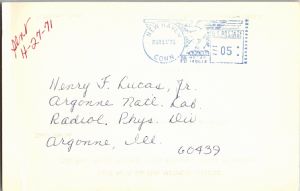 Sent
4-27-71
NEW HAVEN
CONN.
05
Henry F. Lucas, Jr.
Argonne Natl. Lab.
Radiol. Phys. Div
Argonne, Ill.
60439